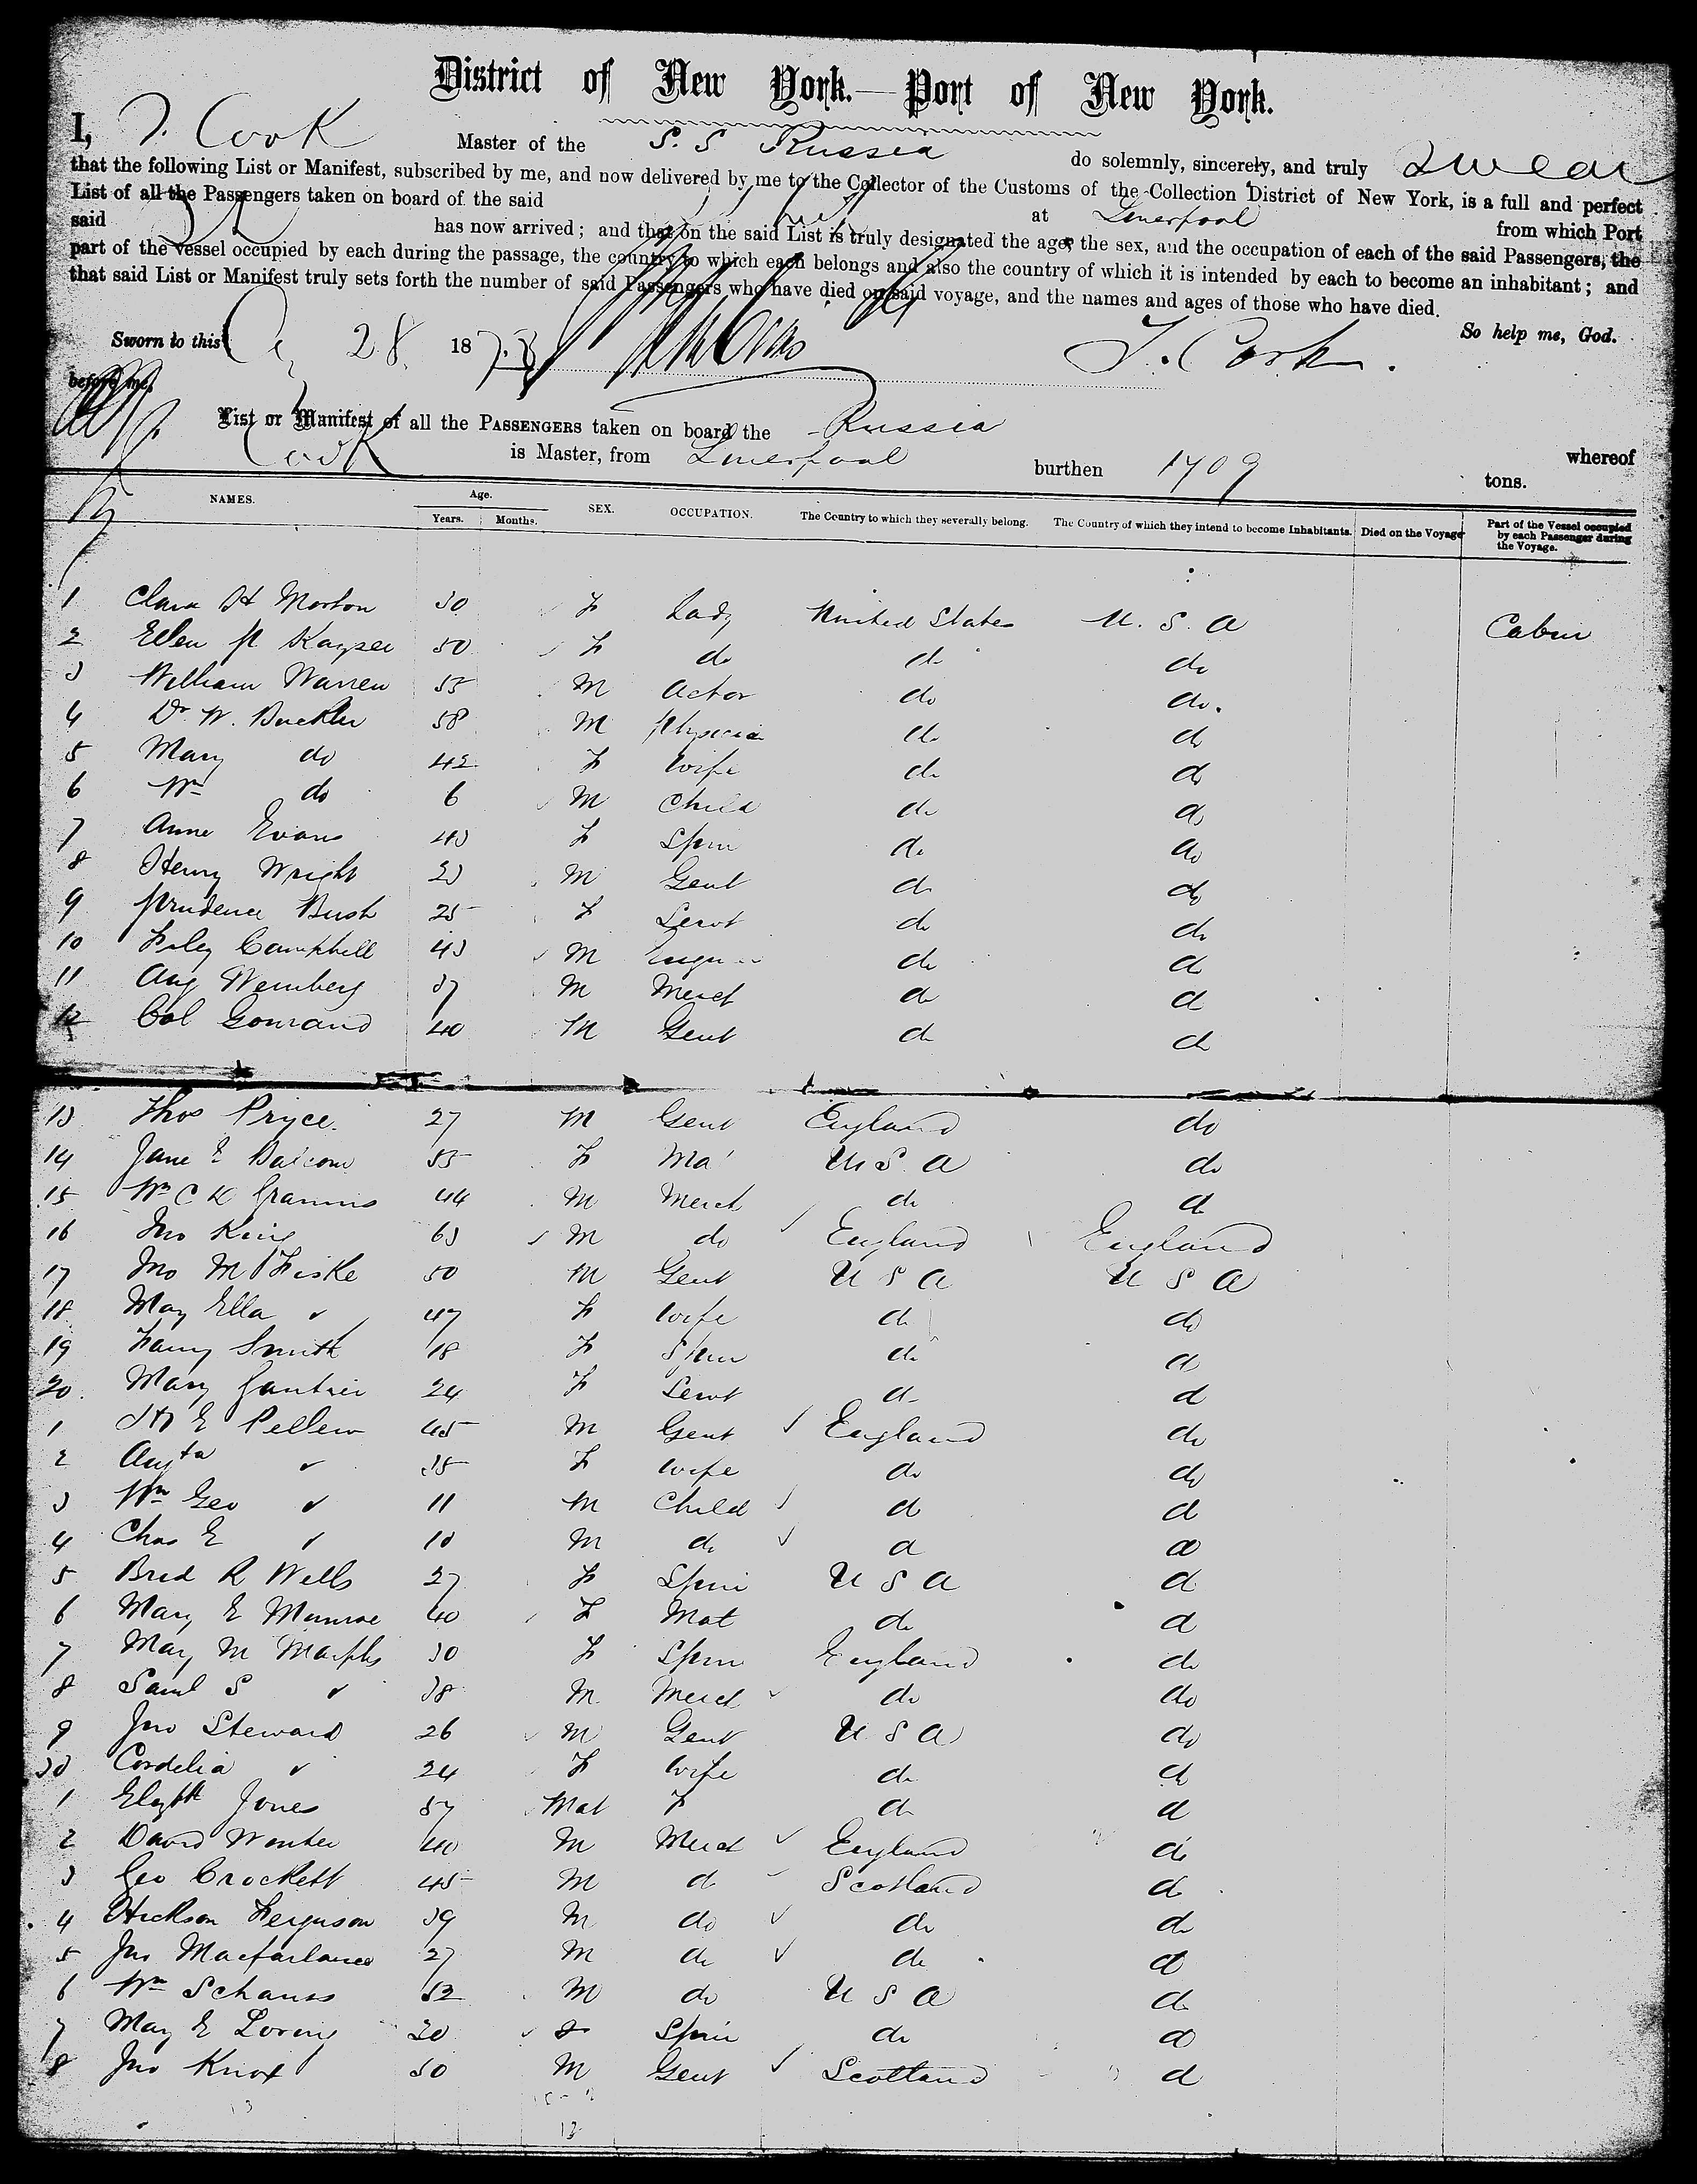 District of New York.—Port of New York.
I, T. Cook Master of the S. S Russia do solemnly, sincerely, and truly swear
that the following List or Manifest, subscribed by me, and now delivered by me to the Collector of the Customs of the Collection District of New York, is a full and perfect
List of all the Passengers taken on board of the said at Liverpool from which Port
said has now arrived; and that on the said List is truly designated the age, the sex, and the occupation of each of the said Passengers, the
part of the vessel occupied by each during the passage, the country to which each belongs and also the country of which it is intended by each to become an inhabitant; and
that said List or Manifest truly sets forth the number of said Passengers who have died on said voyage, and the names and ages of those who have died.
So help me, God.
Sworn to this 28 187 T. Cook.
before me,
List or Manifest of all the PASSENGERS taken on board the Russia whereof
Cook is Master, from Liverpool burthen 1709 tons.
NAMES. Age. Years. Months. SEX. OCCUPATION. The Country to which they severally belong. The Country of which they intend to become Inhabitants. Died on the Voyage Part of the Vessel occupied by each Passenger during the Voyage.
1 Clara H Morton 30 F Lady United States U. S. A Cabin
2 Ellen K Kayser 50 F do do do
3 William Warren 55 M Actor do do.
4 Dr W. Buckler 58 M Physician do do
5 Mary do 42 F Wife do do
6 Wm do 6 M Child do do
7 Anne Evans 43 F Spin do do
8 Henry Wright 23 M Gent do do
9 Prudence Bush 25 F Servt do do
10 Campbell 43 M do do
11 Aug Weinberg 37 M Merct do do
12 Col Gouraud 40 M Gent do do
13 Thos Pryce. 27 M Gent England do
14 Jane E Balcom 55 F Ma U S. A do
15 Wm C D Grannis 44 M Merct do do
16 Jno King 63 M do England England
17 Jno M Fiske 50 M Gent U S A U S A
18 May Ella " 47 F Wife do do
19 Fanny Smith 18 F Spin do do
20. Mary Gautier 24 F Servt do do
1 H E Pellew 45 M Gent England do
2 Augta " 35 F Wife do do
3 Wm Geo " 11 M Child do do
4 Chas E " 10 M do do do
5 R Wells 27 F Spin U S A do
6 Mary E Munroe 40 F Mat do do
7 May M 30 F Spin England do
8 Saml S " 38 M Merct do do
9 Jno Steward 26 M Gent U S A do
30 Cordelia " 24 F Wife do do
1 Elizbth Jones 57 Mat F do do
2 David 40 M Merct England do
3 Geo Crockett 45 M do Scotland do
4 Hickson Ferguson 39 M do do do
5 Jas Macfarlane 27 M do do do
6 Wm Schauss 52 M do U S A do
7 May E Loring 20 F Spin do do
8 Jno Knox 50 M Gent Scotland do